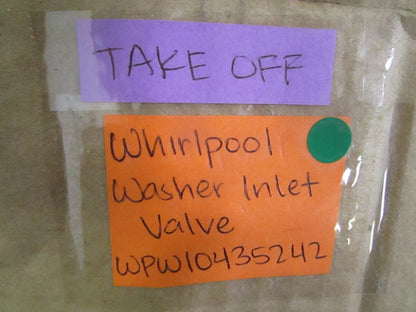 TAKE OFF
Whirlpool
Washer Inlet
Valve
WPW10435242